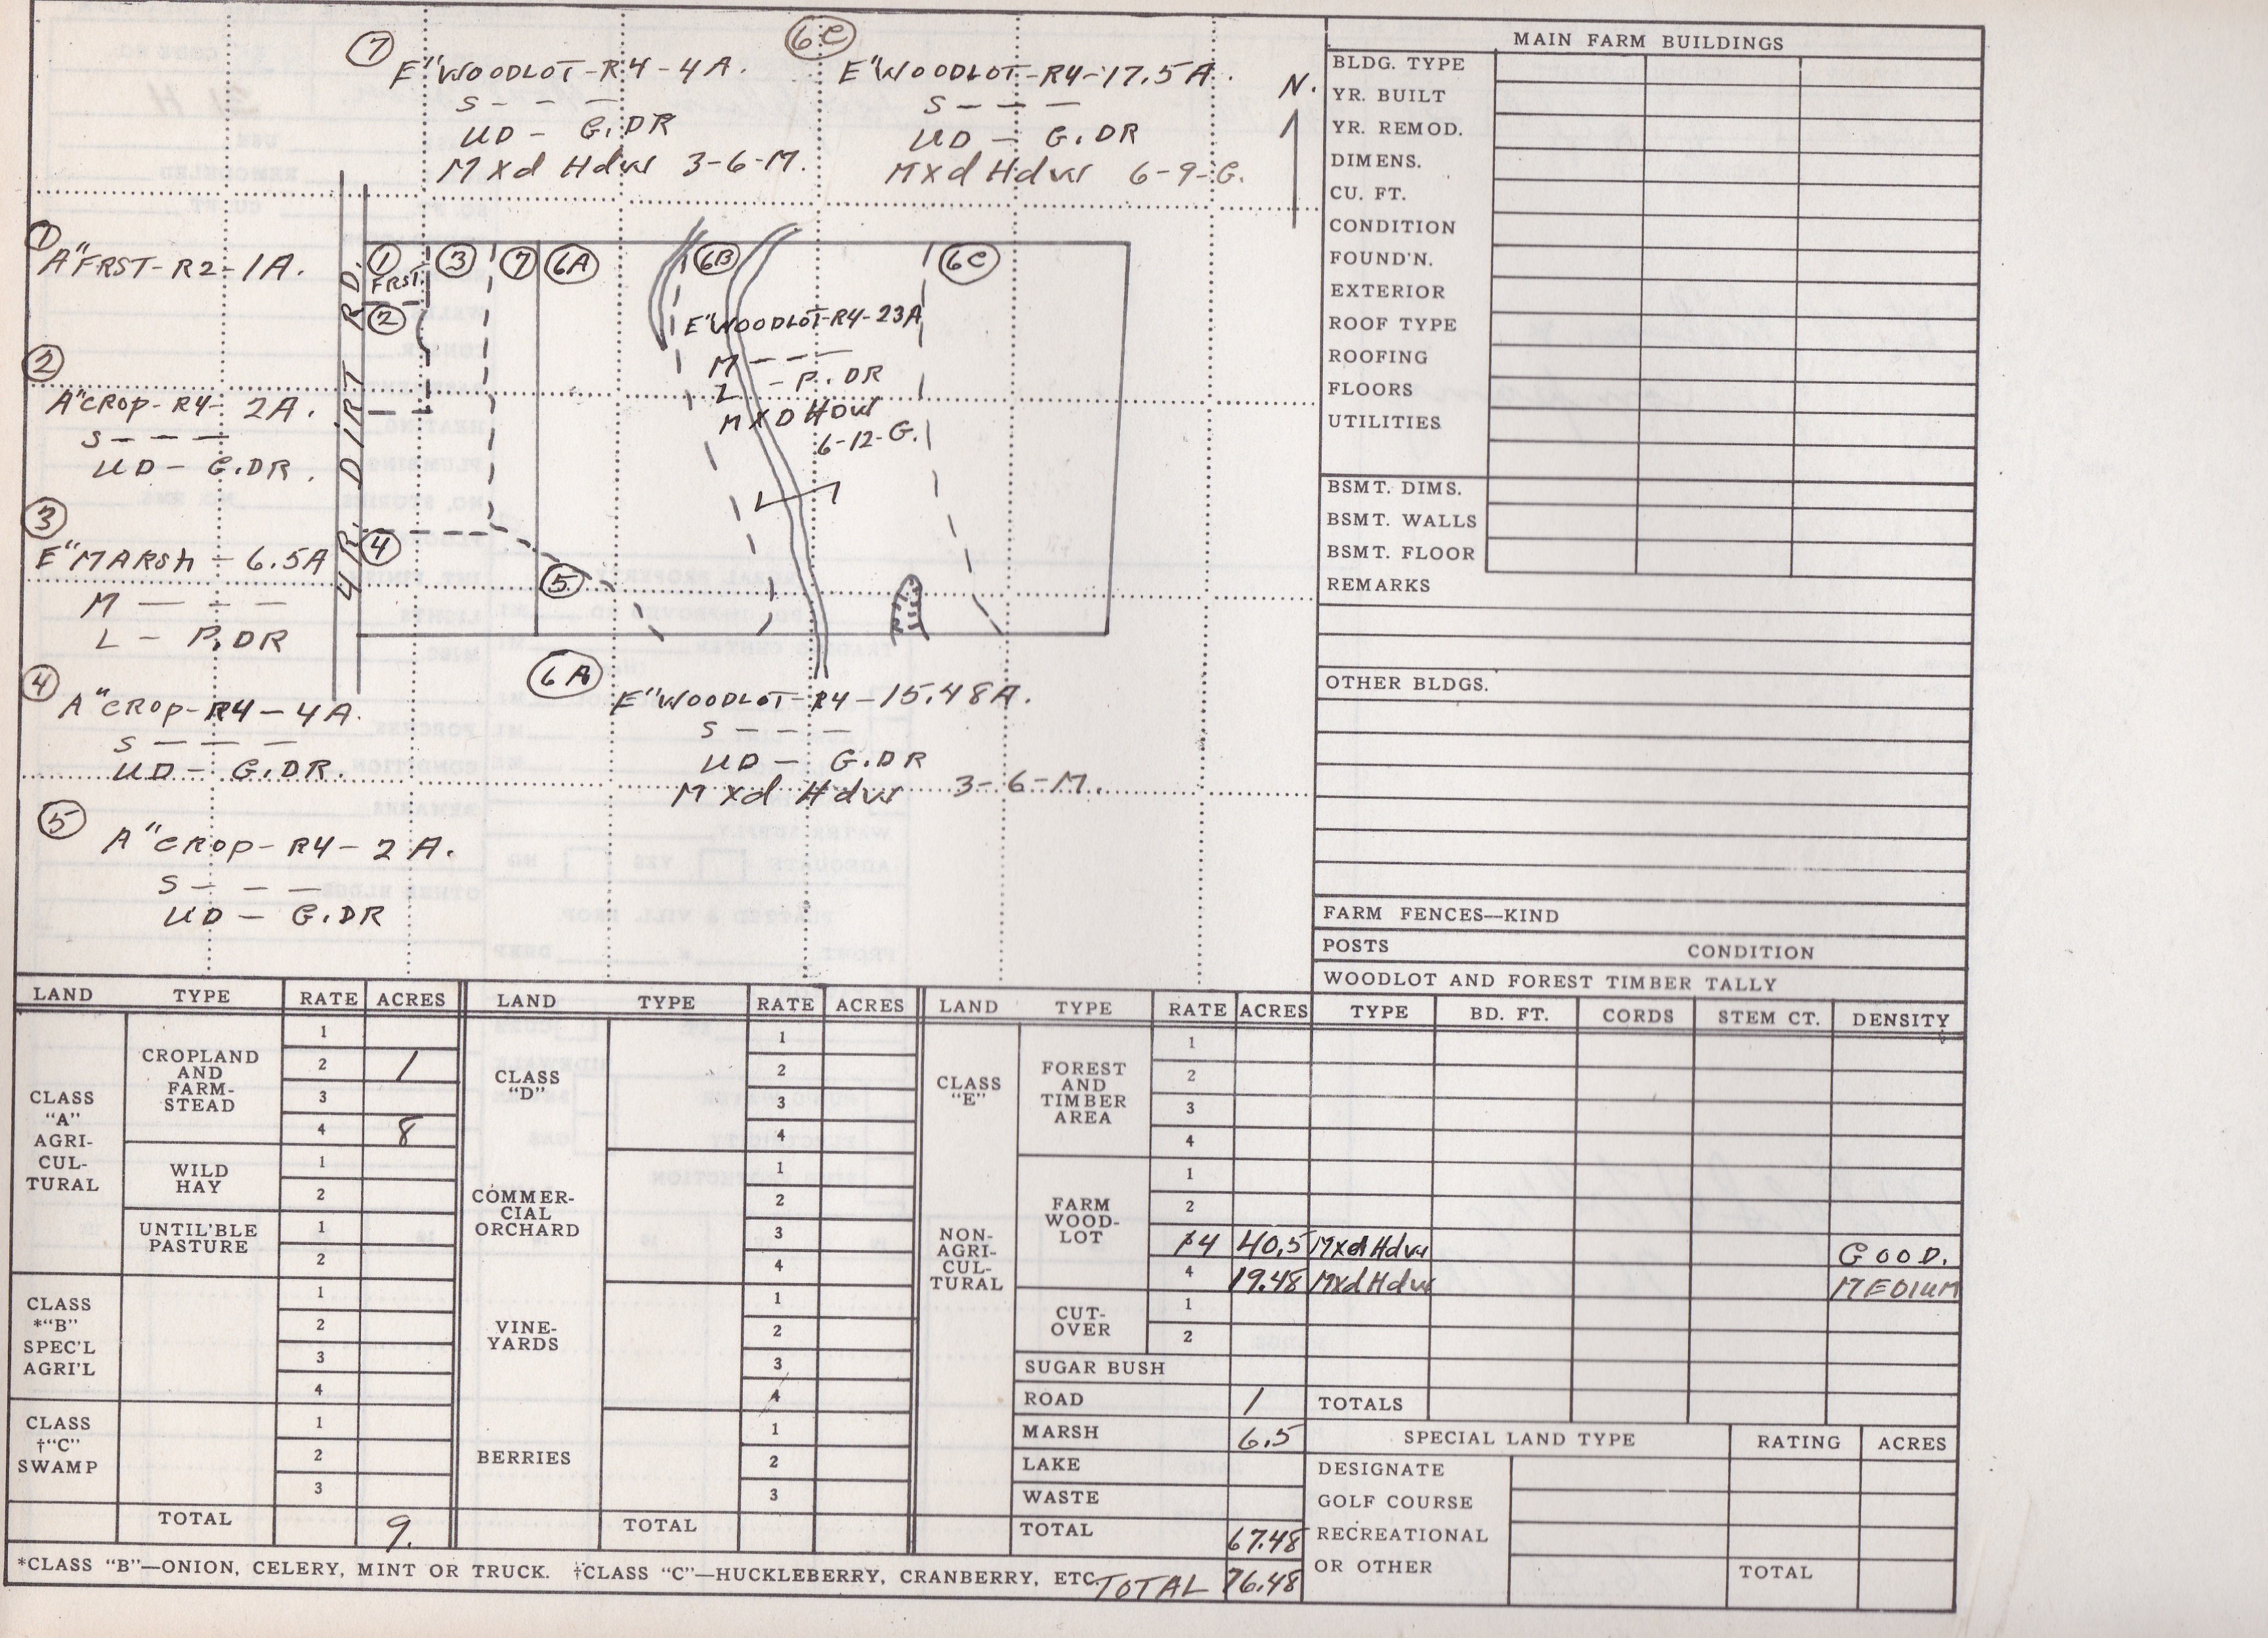 7
E" WOODLOT-R4-4A.
S - - -
UD - G.DR
Mxd Hdw 3-6-M.
6C
E" WOODLOT-R4-17.5A.
S - - -
UD - G.DR
Mxd Hdw 6-9-G.
N.
1
A" FRST-R2-1A.
2
A" CROP-R4-2A.
S - - -
UD - G.DR.
3
E" MARSH - 6.5A
M - - -
L - P.DR
4
A" CROP-R4-4A.
S - - -
UD - G.DR.
5
A" CROP-R4-2A.
S - - -
UD - G.DR
4 R. DIRT RD.
1 3 7 6A 6B 6C
FRST.
2
E" WOODLOT-R4-23A
M - - -
L - P.DR
MXD HDW
6-12-G.
4
5
6A
E" WOODLOT-R4-15.48A.
S - - -
UD - G.DR
Mxd Hdw 3-6-M.
MAIN FARM BUILDINGS
BLDG. TYPE
YR. BUILT
YR. REMOD.
DIMENS.
CU. FT.
CONDITION
FOUND'N.
EXTERIOR
ROOF TYPE
ROOFING
FLOORS
UTILITIES
BSMT. DIMS.
BSMT. WALLS
BSMT. FLOOR
REMARKS
OTHER BLDGS.
FARM FENCES—KIND
POSTS CONDITION
WOODLOT AND FOREST TIMBER TALLY
LAND TYPE RATE ACRES LAND TYPE RATE ACRES LAND TYPE RATE ACRES TYPE BD. FT. CORDS STEM CT. DENSITY
CLASS
"A"
AGRI-
CUL-
TURAL
CROPLAND
AND
FARM-
STEAD
1
2 1
3
4 8
WILD
HAY
1
2
UNTIL'BLE
PASTURE
1
2
CLASS
*"B"
SPEC'L
AGRI'L
1
2
3
4
CLASS
†"C"
SWAMP
1
2
3
TOTAL 9.
CLASS
"D"
1
2
3
4
COMMER-
CIAL
ORCHARD
1
2
3
4
VINE-
YARDS
1
2
3
4
BERRIES
1
2
3
TOTAL
CLASS
"E"
NON-
AGRI-
CUL-
TURAL
FOREST
AND
TIMBER
AREA
1
2
3
4
FARM
WOOD-
LOT
1
2
4 40.5 Mxd Hdw GOOD.
4 19.48 Mxd Hdw MEDIUM
CUT-
OVER
1
2
SUGAR BUSH
ROAD 1 TOTALS
MARSH 6.5
LAKE
WASTE
TOTAL 67.48
SPECIAL LAND TYPE RATING ACRES
DESIGNATE
GOLF COURSE
RECREATIONAL
OR OTHER TOTAL
*CLASS "B"—ONION, CELERY, MINT OR TRUCK. †CLASS "C"—HUCKLEBERRY, CRANBERRY, ETC. TOTAL 76.48